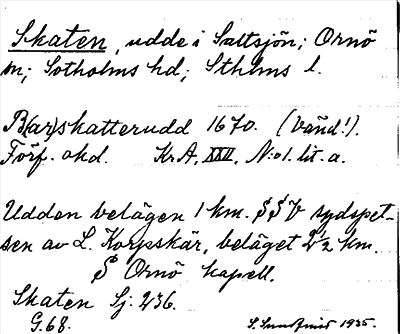 Skaten, udde i Saltsjön; Ornö
sn; Sotholms hd; Sthlms l.
B(ar)skatterudd 1670. (Vänd!).
Förf. okd. KrA, XXII, N:o 1. lit. a.
Udden belägen 1 km. SSV sydspet-
sen av L. Korpskär, beläget 2½ km.
S Ornö kapell.
Skaten Sj. 236.
G. 68. S. Sundqvist 1935